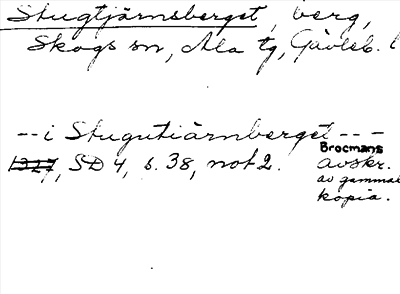 Stugtjärnsberget, berg,
Skogs sn, Ala tg, Gävleb. l
-- i Stugutiärnberget -- -
1327, SD 4, s. 38, not 2.
Brocmans
avskr.
av gammal
kopia.